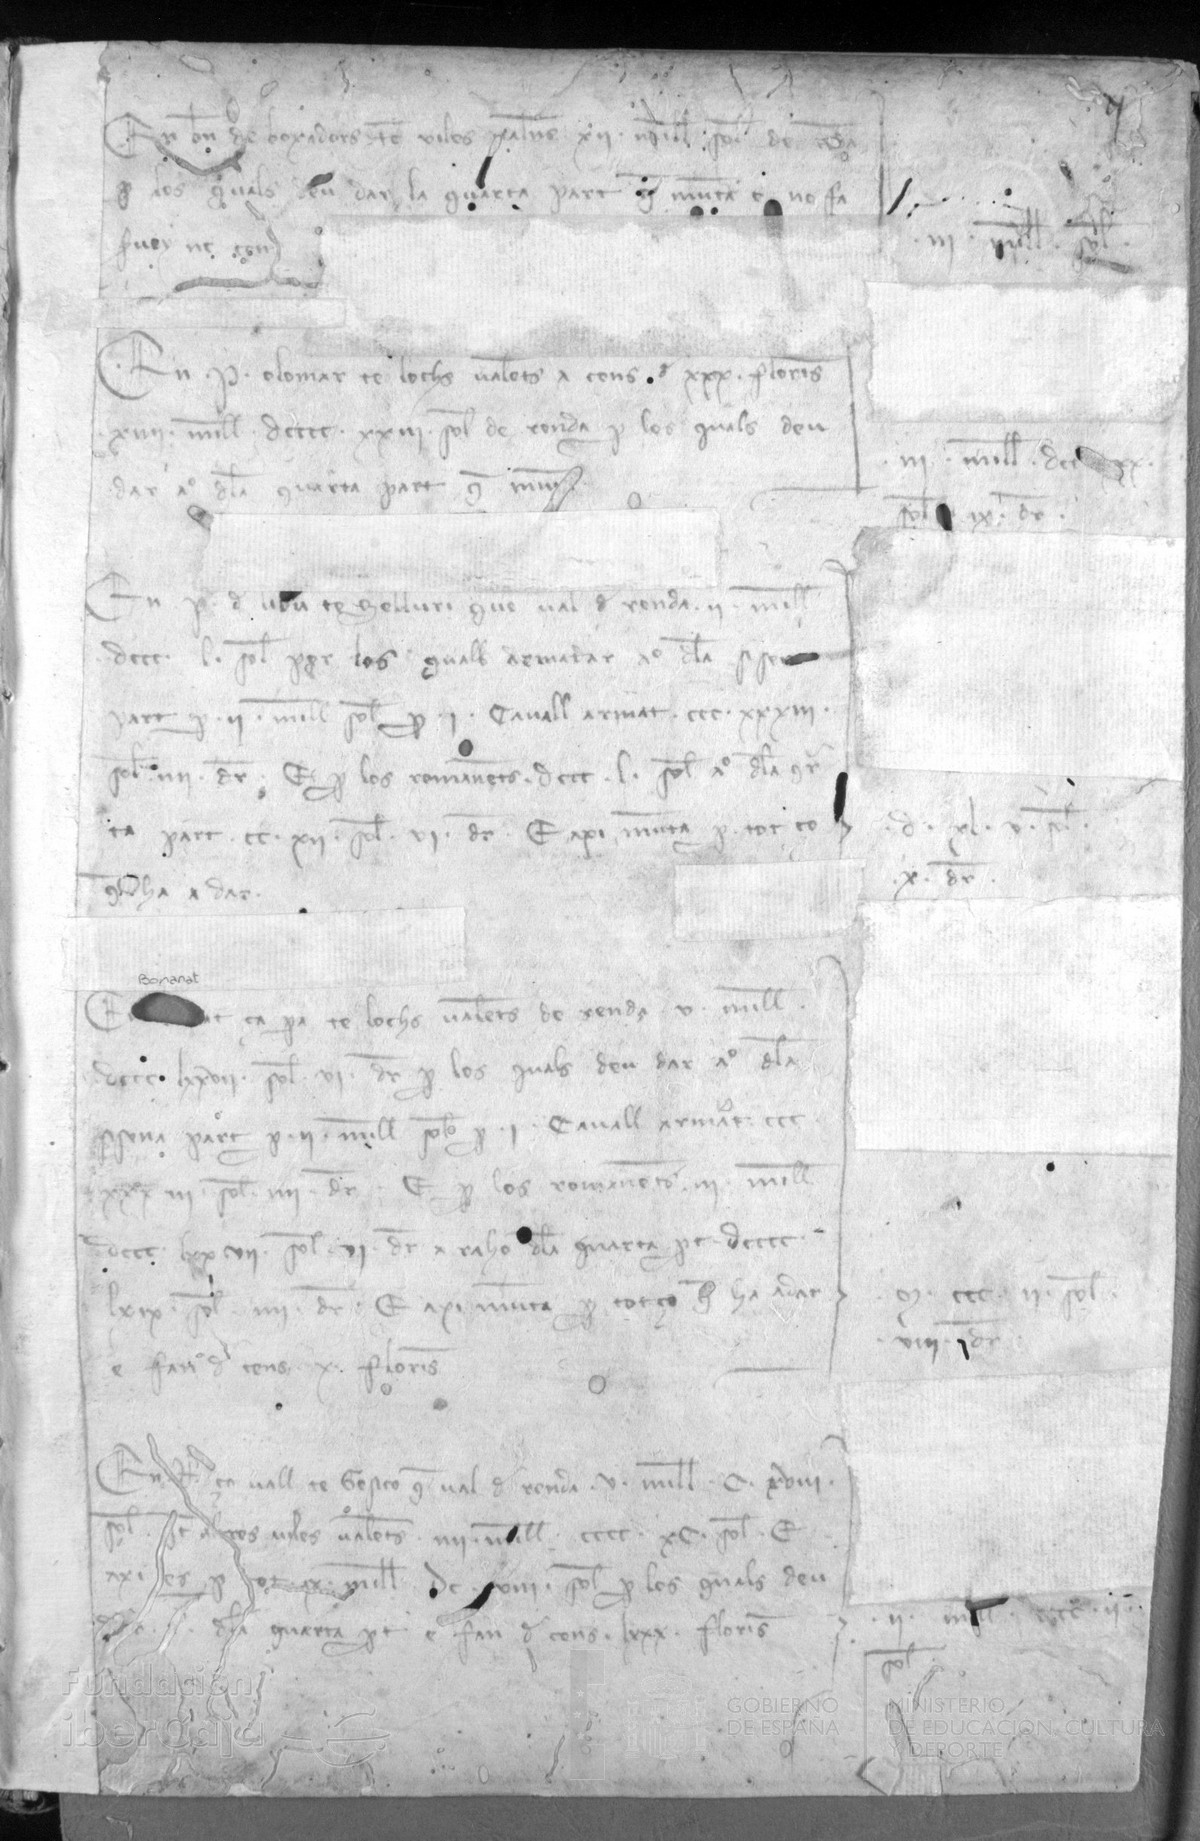 En bn de boxadors te viles valents xii · mill · sol de renda
p los quals deu dar la quarta part q munta e no fa
fuey ne cens
· iii · mill · sol ·
En · P · olomar te lochs valents a cens · d xxx · floris
xviii · mill · dcccc · xxiii · sol de renda p los quals deu
dar a° dla quarta part q munta
· iii · mill · dcc xx ·
sol · ix · dr ·
En P · d te Selluri que val d renda · ii · mill
dccc · l · sol per los quals dar a° dla sisena
part p · ii · mill sol p · i · Cavall armat · ccc · xxxiii ·
sol · iiii · dr · E p los romanents · dccc · l · sol a° dla qr
ta part · cc · xii · sol · vi · dr · E axi munta p · tot ço
q ha a dar ·
· d · xl · v · sol ·
· x · dr ·
Bonanat
En at ça pa te lochs valents de renda · v · mill ·
dccc · lxxvii · sol · vi · dr p los quals deu dar a° dla
sisena part p · ii · mill sols p · i · Cavall armat · ccc ·
xxxiii · sol · iiii · dr · E p los romanents · iii · mill
dccc · lxxvii · sol · vi · dr a raho dla quarta pt · dcccc ·
lxix · sol · iiii · dr · E axi munta p tot ço q ha a dar
e fan d cens · x · floris
· M · ccc · ii · sol ·
viii · dr ·
En · ça vall te Gosico q val d renda · v · mill · C · xviii ·
sol · It altres viles valents · iiii · mill · cccc · xC · sol · E
axi es p tot · ix · mill · dc · viii · sol p los quals deu
dar a° dla quarta pt · e fan d cens · lxx · floris
· ii · mill · cccc · ii ·
sol ·
Fundación
ibercaja
GOBIERNO
DE ESPAÑA
MINISTERIO
DE EDUCACIÓN, CULTURA
Y DEPORTE